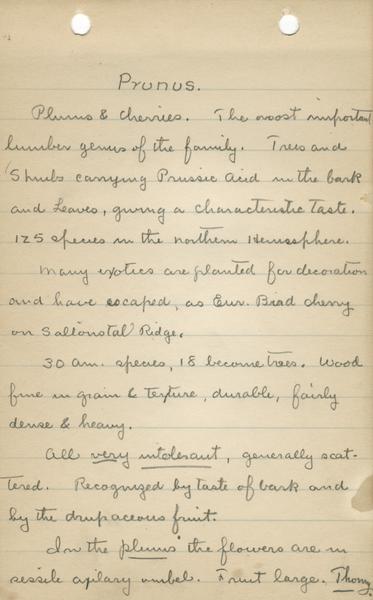 Prunus.
Plums & Cherries. The most important
lumber genus of the family. Trees and
Shrubs carrying Prussic Acid in the bark
and leaves, giving a characteristic taste.
125 species in the northern Hemisphere.
Many exotics are planted for decoration
and have escaped, as Eur. Bird cherry
on Saltonstal Ridge.
30 Am. species, 18 become trees. Wood
fine in grain & texture, durable, fairly
dense & heavy.
All very intolerant, generally scat-
tered. Recognized by taste of bark and
by the drupaceous fruit.
In the plums the flowers are in
sessile axilary umbel. Fruit large. Thorny.